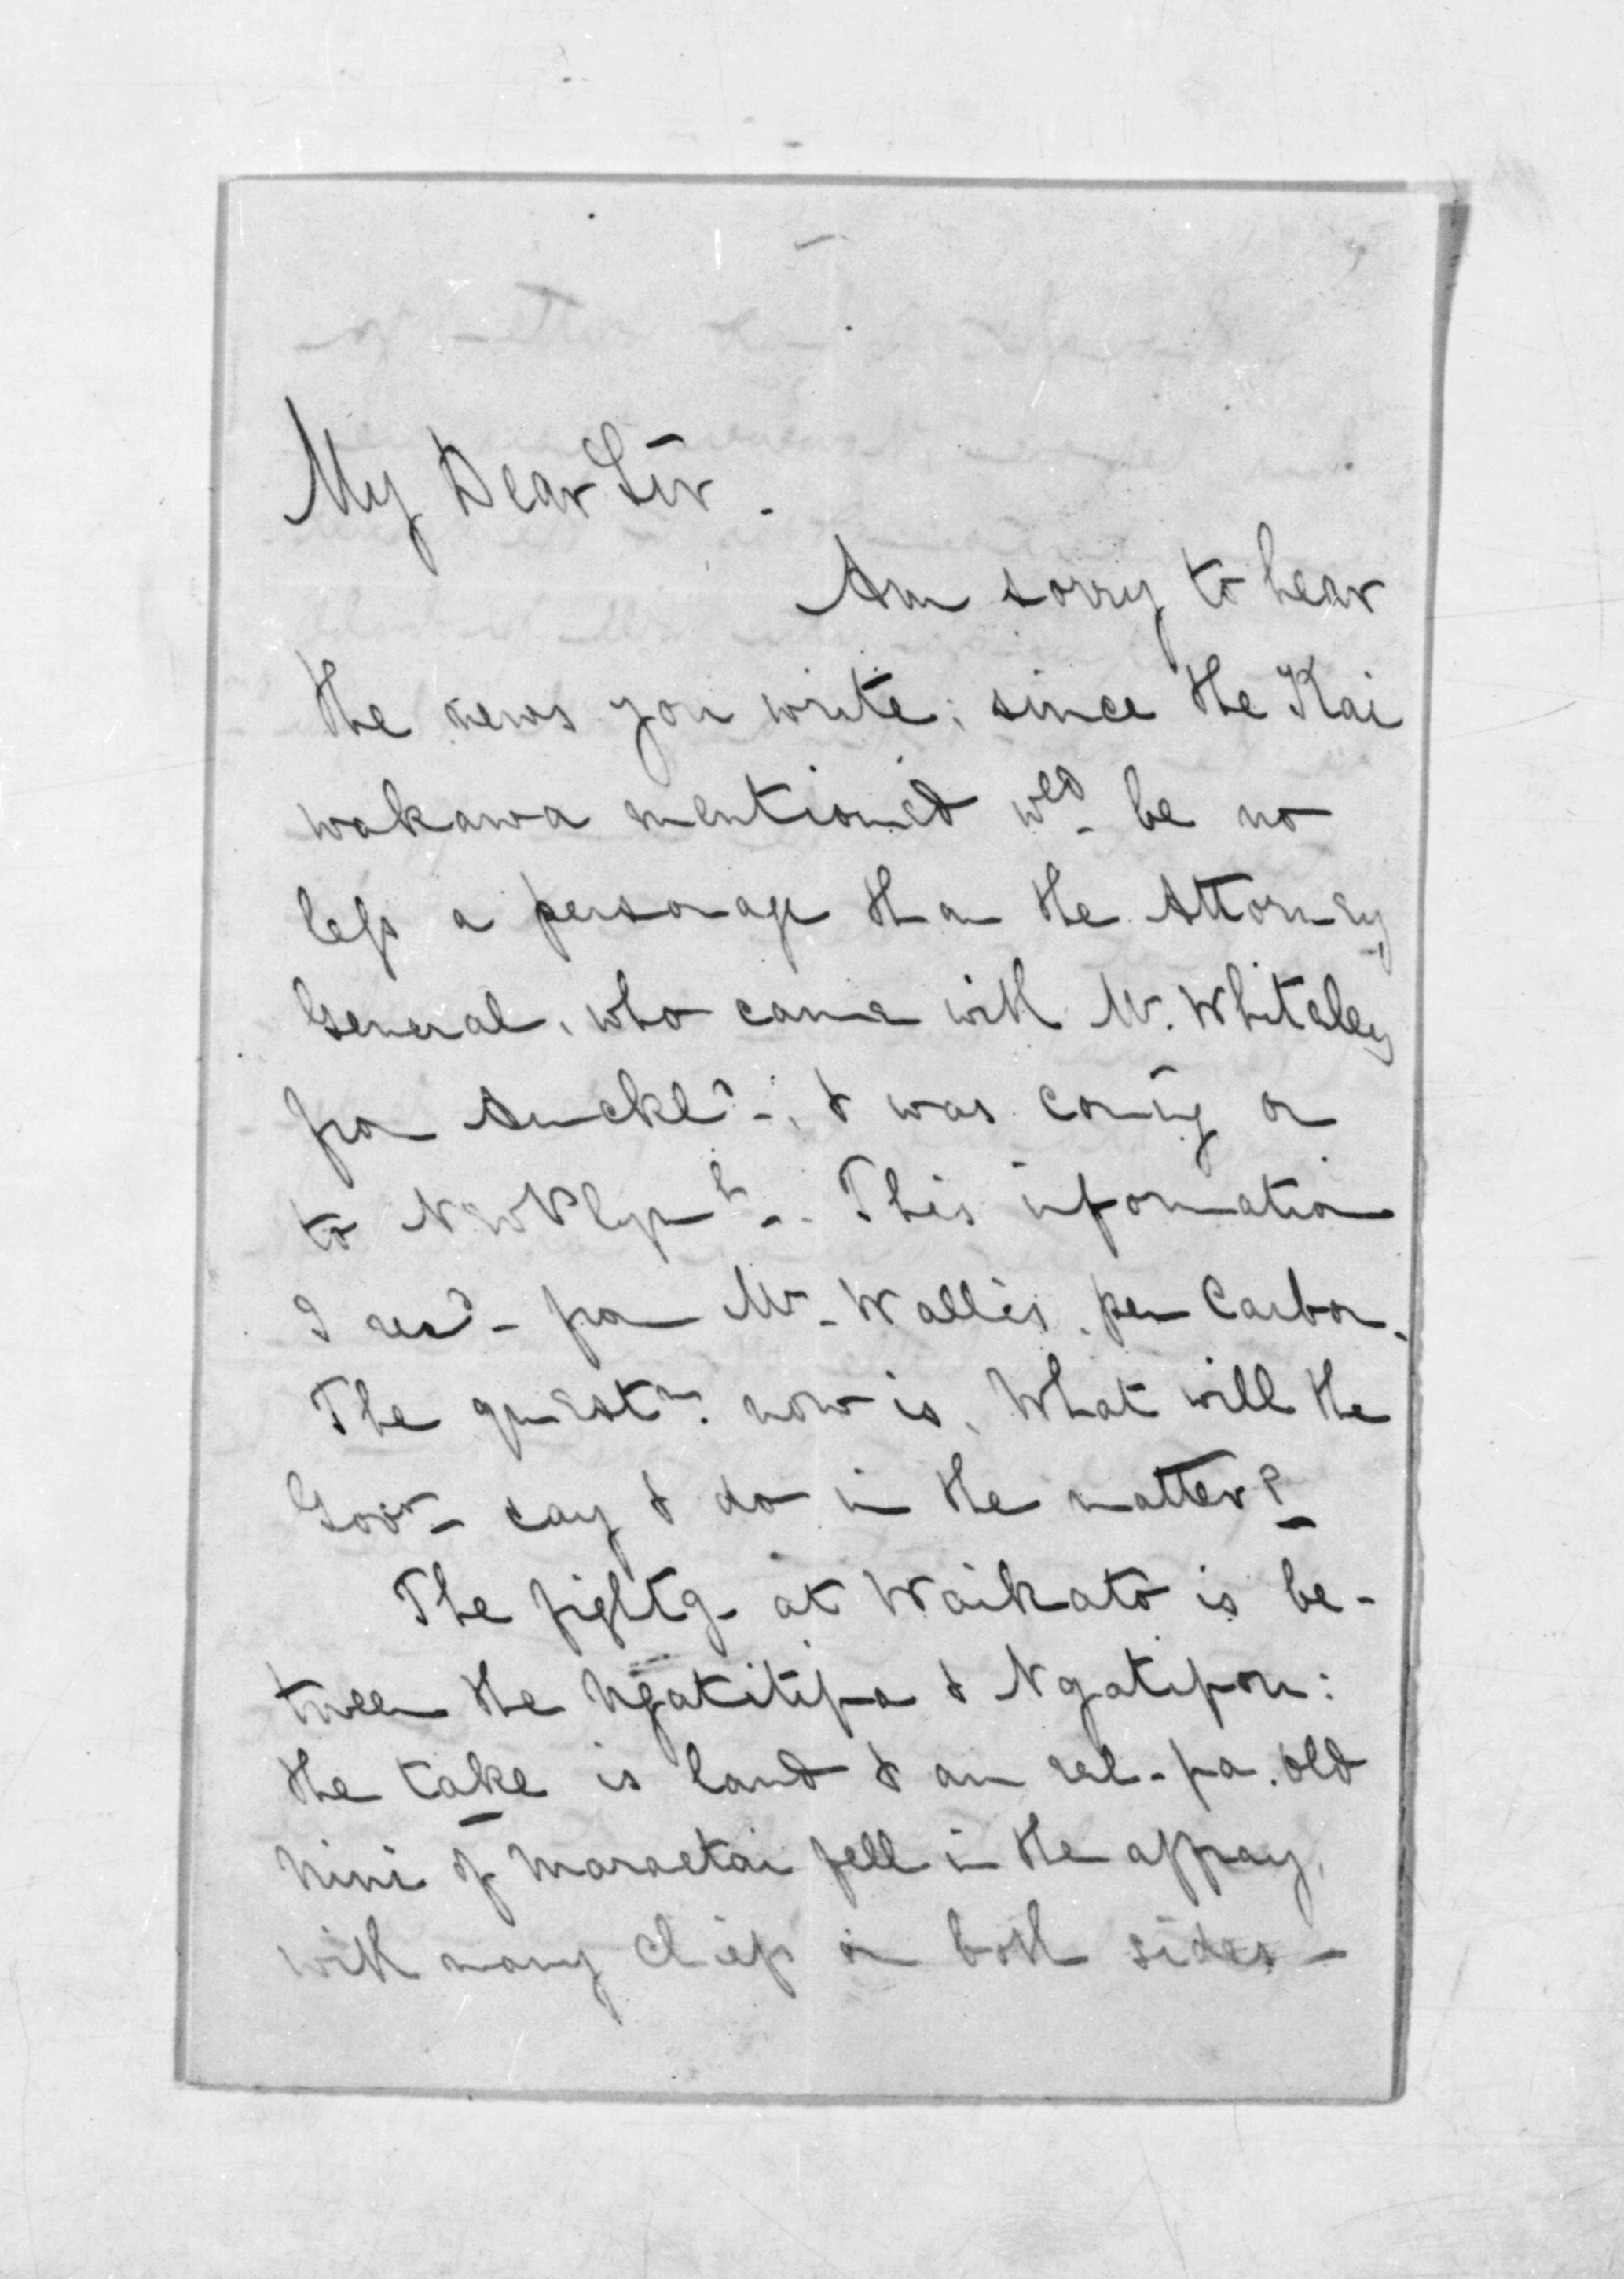 My Dear Sir.
Am sorry to hear
the news you write; since the Kai
wakawa mentioned wld. be no
less a personage than the Attorney
General, who came with Mr. Whiteley
from Auckld., & was coming on
to New Plymth. This information
I recd. from Mr. Wallis, per Carbon.
The questn. now is, What will the
Govr. say & do in the matter?
The fightg. at Waikato is be-
tween the Ngatitipa & Ngatipou:
the take is land & an eel-pa. Old
Nini of Maraetai fell in the affray,
with many chiefs on both sides -